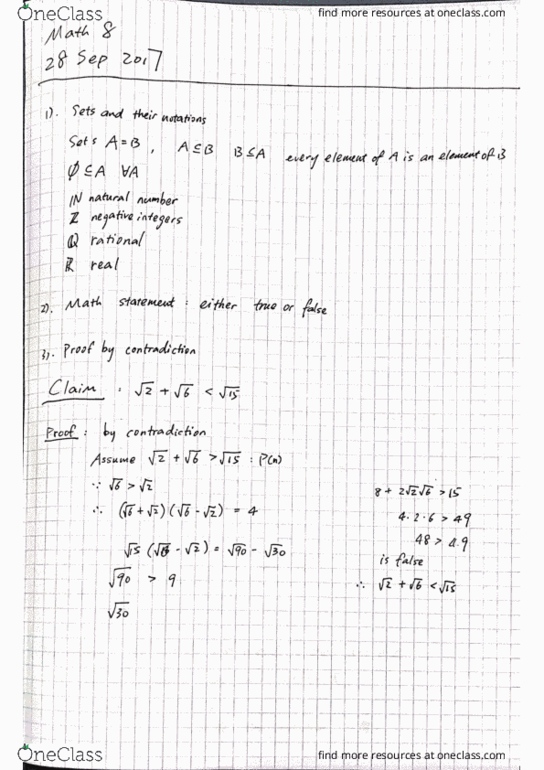 OneClass
find more resources at oneclass.com
Math 8
28 Sep 2017
1). Sets and their notations
Sets A=B , A⊆B B⊆A every element of A is an element of B
∅⊆A ∀A
ℕ natural number
ℤ negative integers
ℚ rational
ℝ real
2). Math statement : either true or false
3). Proof by contradiction
Claim : √2 + √6 < √15
Proof : by contradiction
Assume √2 + √6 > √15 : P(n)
∵ √6 > √2
∴ (√6 + √2) (√6 - √2) = 4
√15 (√6 - √2) = √90 - √30
√90 > 9
√30
8 + 2√2√6 > 15
4 · 2 · 6 > 49
48 > 49
is false
∴ √2 + √6 < √15
OneClass
find more resources at oneclass.com